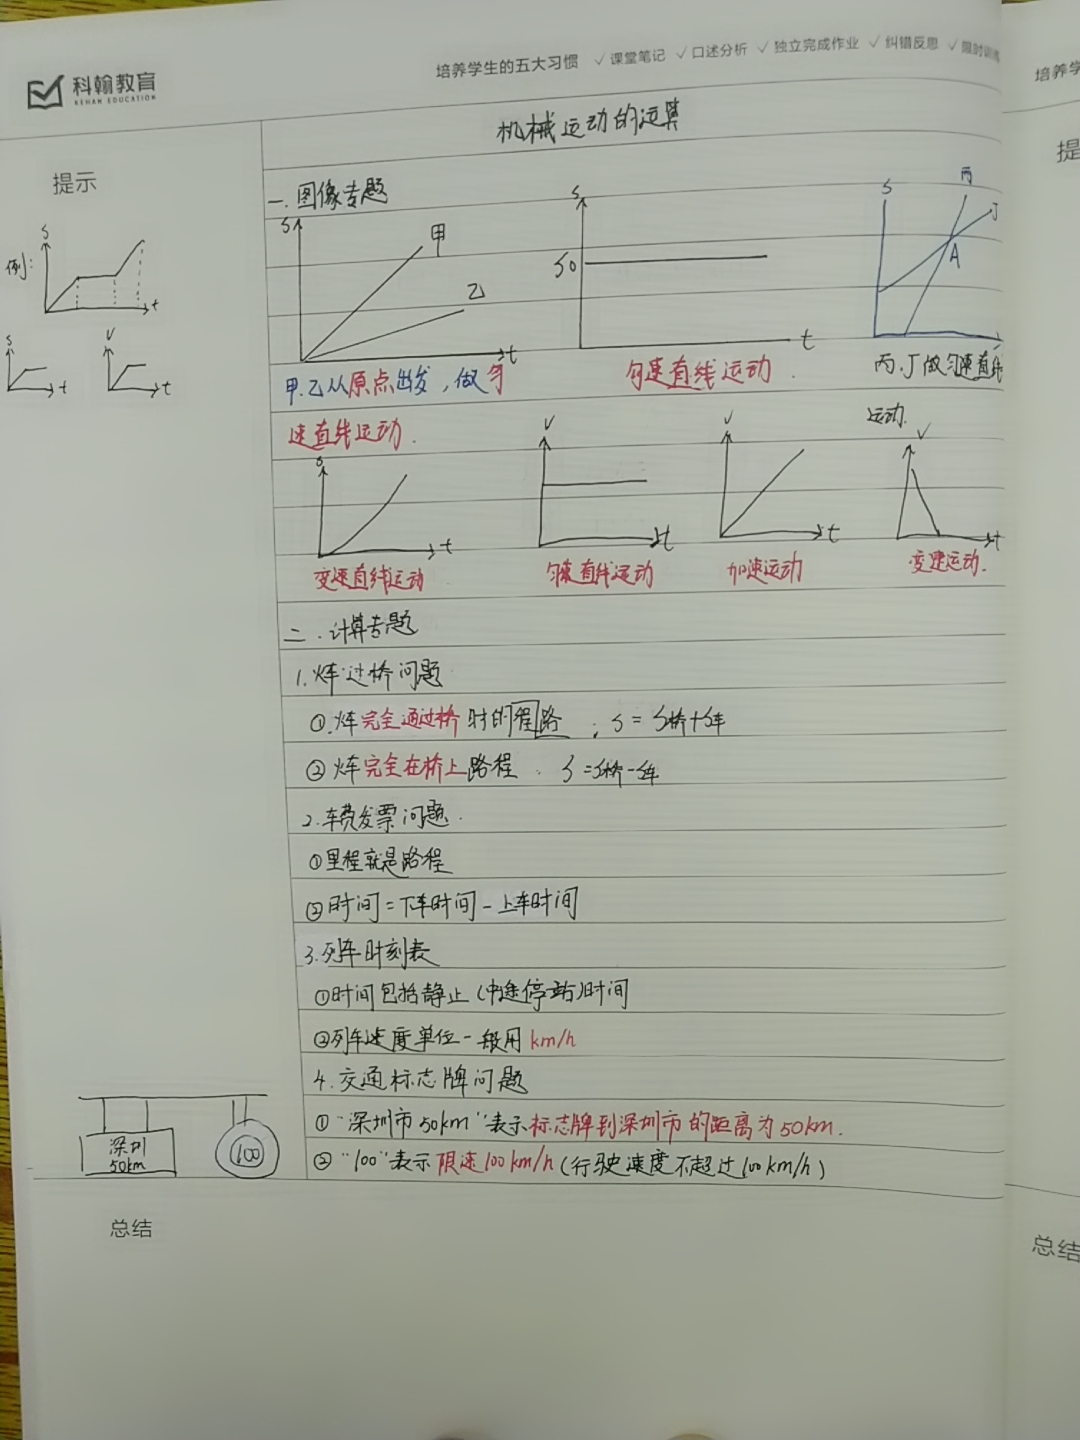 科翰教育
KEHAN EDUCATION
培养学生的五大习惯 ✓课堂笔记 ✓口述分析 ✓独立完成作业 ✓纠错反思 ✓限时训练
培养学
提示
提
机械运动的运算
一.图像专题
例:
S
t
S
t
V
t
S
甲
乙
t
甲.乙从原点出发,做匀
速直线运动.
S
S0
t
匀速直线运动.
S
丙
丁
A
丙.丁做匀速直线
运动.
S
t
变速直线运动
V
t
匀速直线运动
V
t
加速运动
V
t
变速运动.
二.计算专题
1.火车过桥问题
①.火车完全通过桥时的路程;S=S桥+S车
②火车完全在桥上路程.S=S桥-S车
2.车费发票问题.
①里程就是路程
②时间=下车时间-上车时间
3.列车时刻表
①时间包括静止(中途停站)时间
②列车速度单位一般用km/h
4.交通标志牌问题
①“深圳市50km”表示标志牌到深圳市的距离为50km.
②“100”表示限速100km/h(行驶速度不超过100km/h)
深圳
50km
100
总结
总结